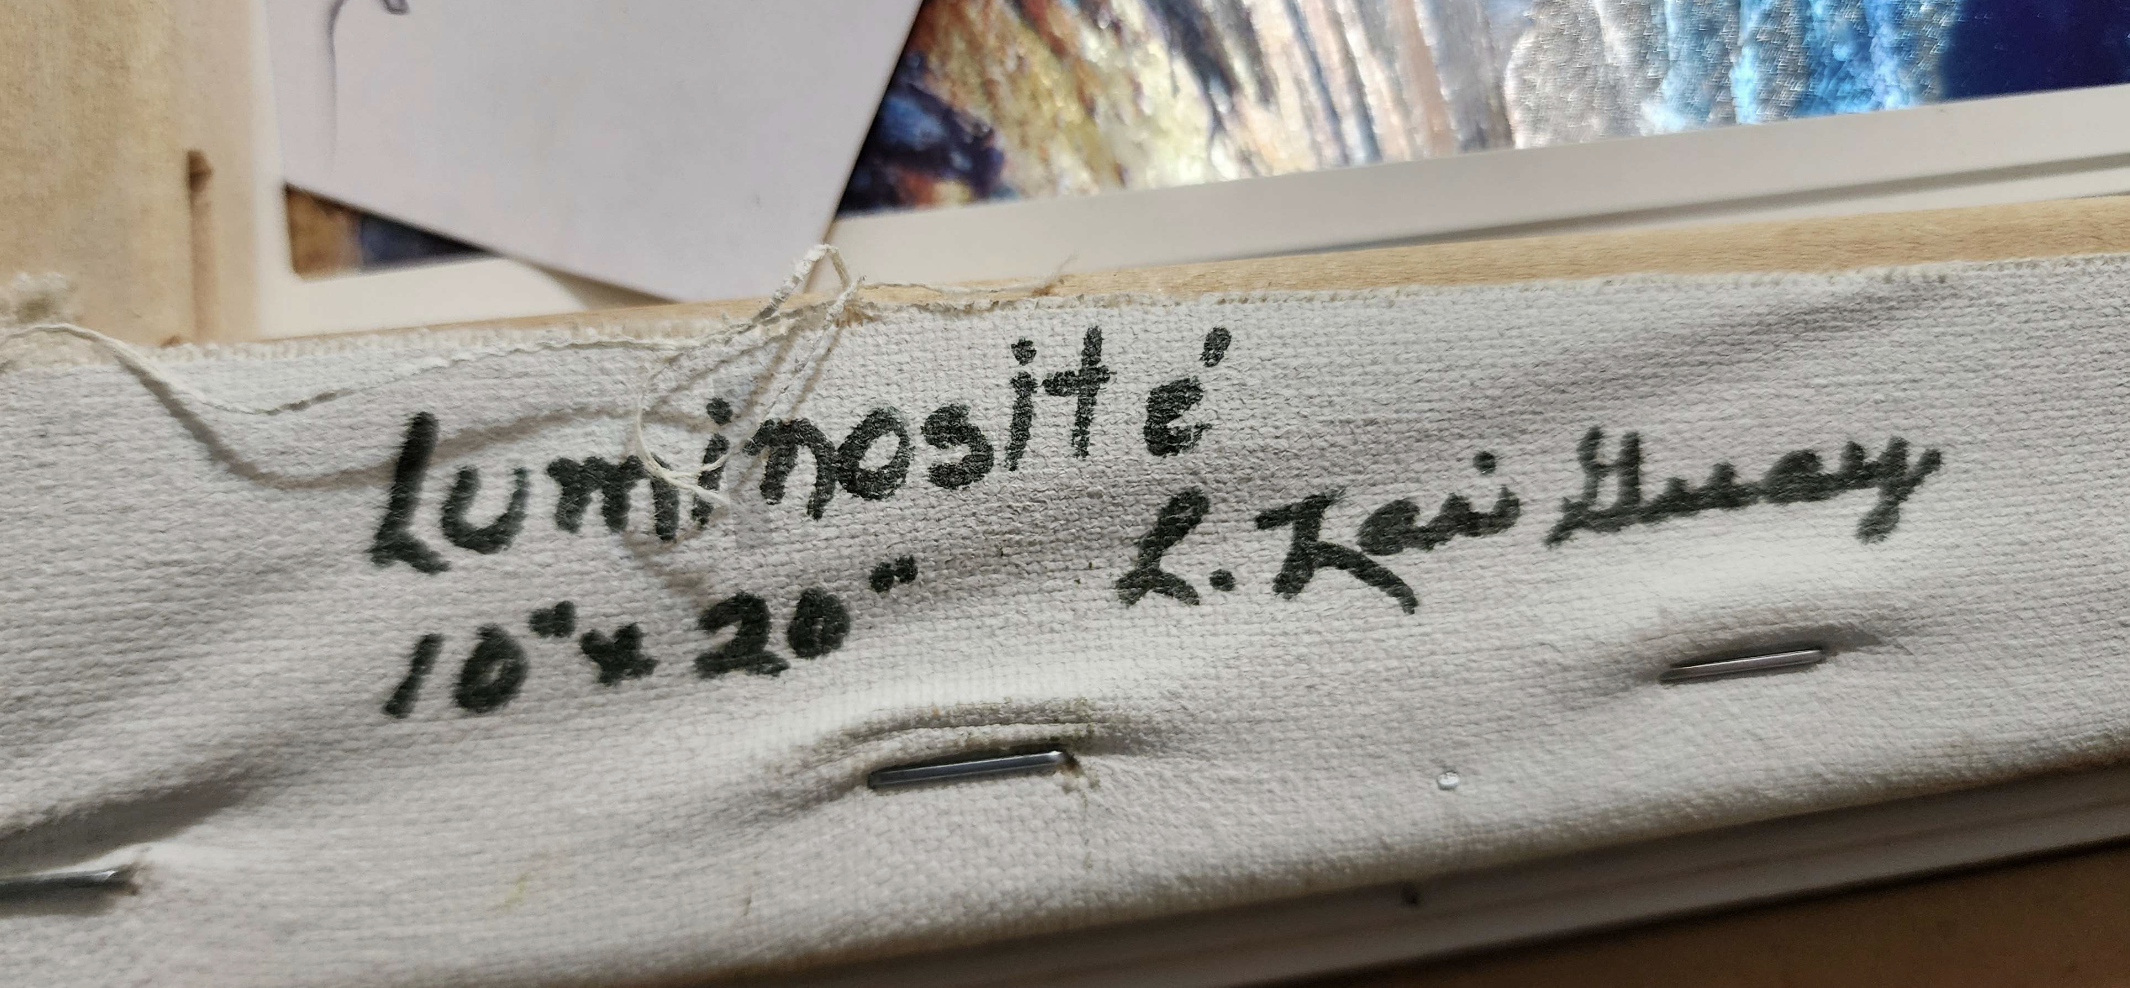 Luminosité
10" x 20"
L. Kari Guay